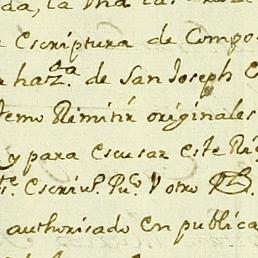 da, la Una las
Escriptura de Compo
haz.da de San Joseph
temo Rimitir originales
y para escusar este Ri
te. Escriv. Pu.co V otro
authorisado en publica